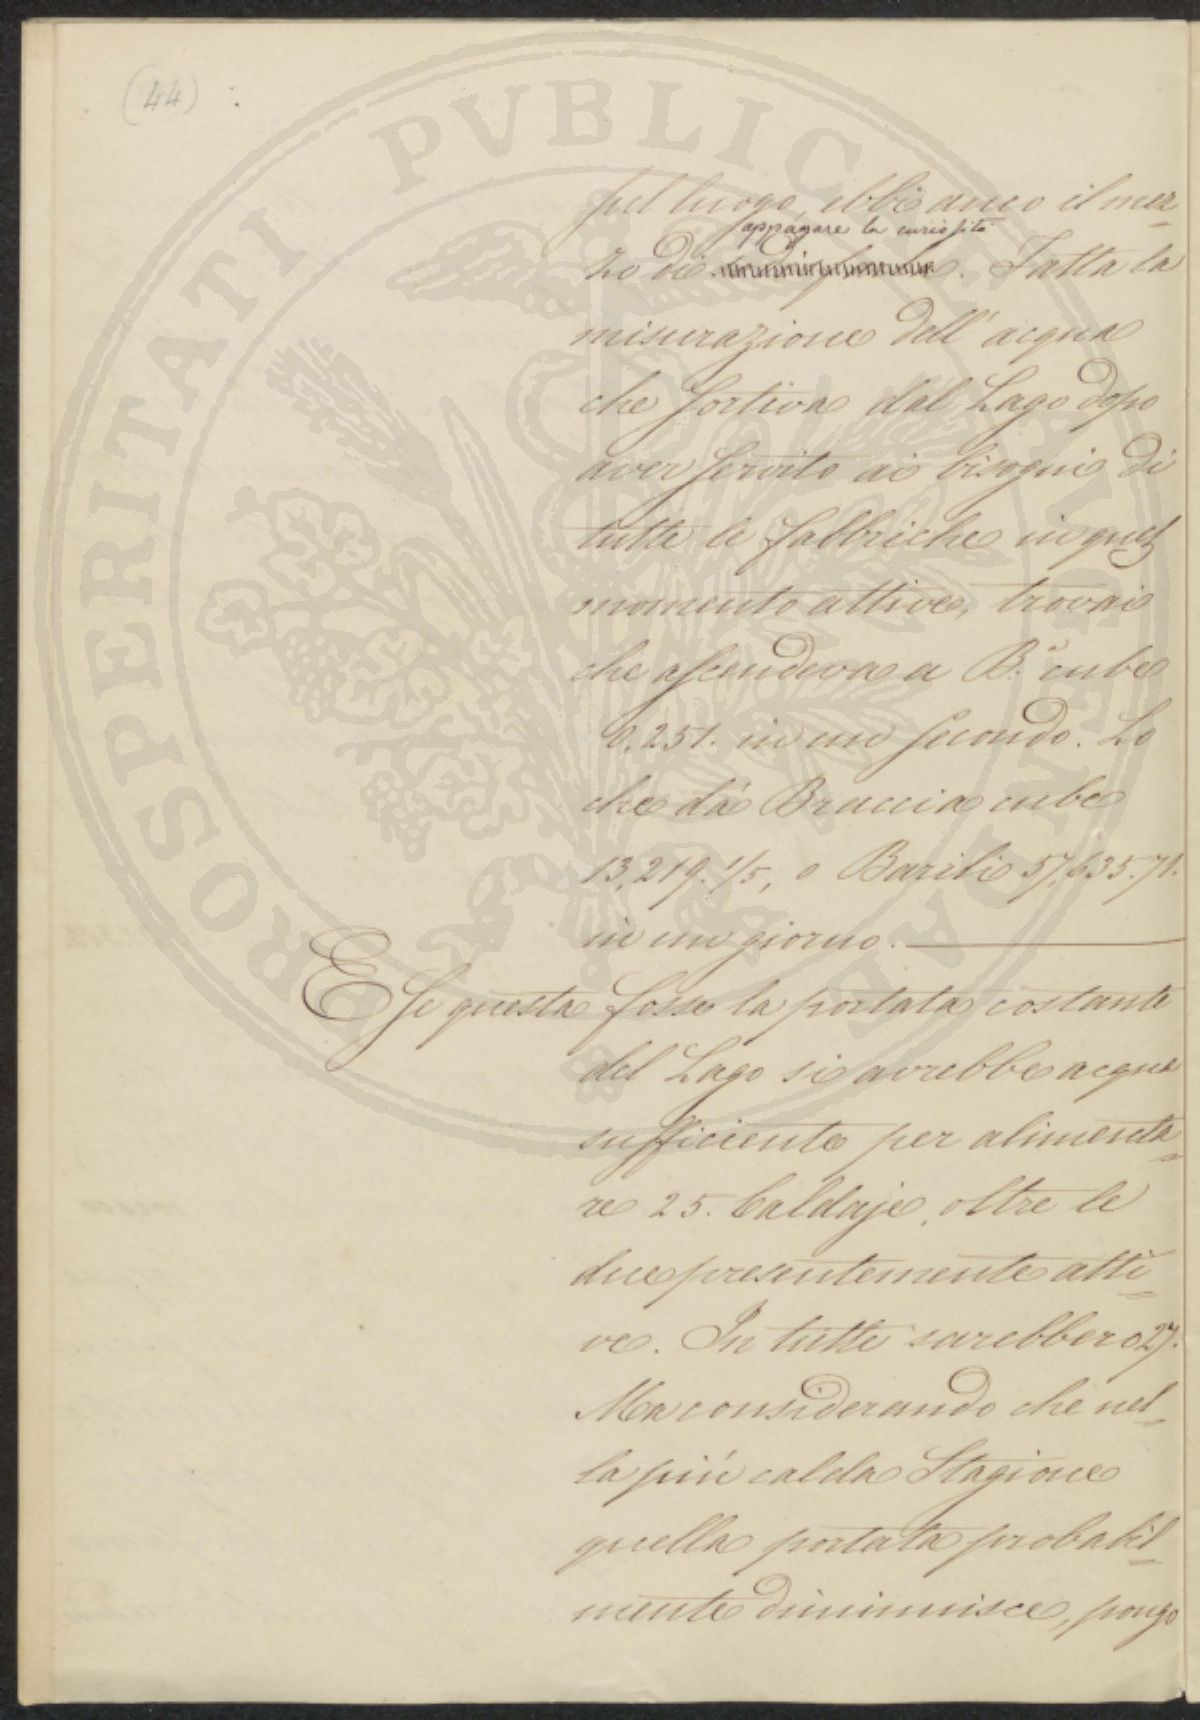 (44)
sul luogo, ebbi anco il mez=
appagare la curiosità
zo di . Fatta la
misurazione dell'acqua
che sortiva dal Lago dopo
aver servito ai bisogni di
tutte le fabbriche in quel
momento attive, trovai
che ascendeva a B.ª cube
0.251. in un secondo. Lo
che dà Braccia cube
13,219.1/5, o Barili 57,635.71.
in un giorno.
E se questa fosse la portata costante
del Lago si avrebbe acqua
sufficiente per alimenta=
re 25. Caldaje, oltre le
due presentemente atti=
ve. In tutte sarebbero 27.
Ma considerando che nel=
la più calda Stagione
quella portata probabil=
mente diminuisce, pongo
PROSPERITATI PVBLICAE AVGENDAE